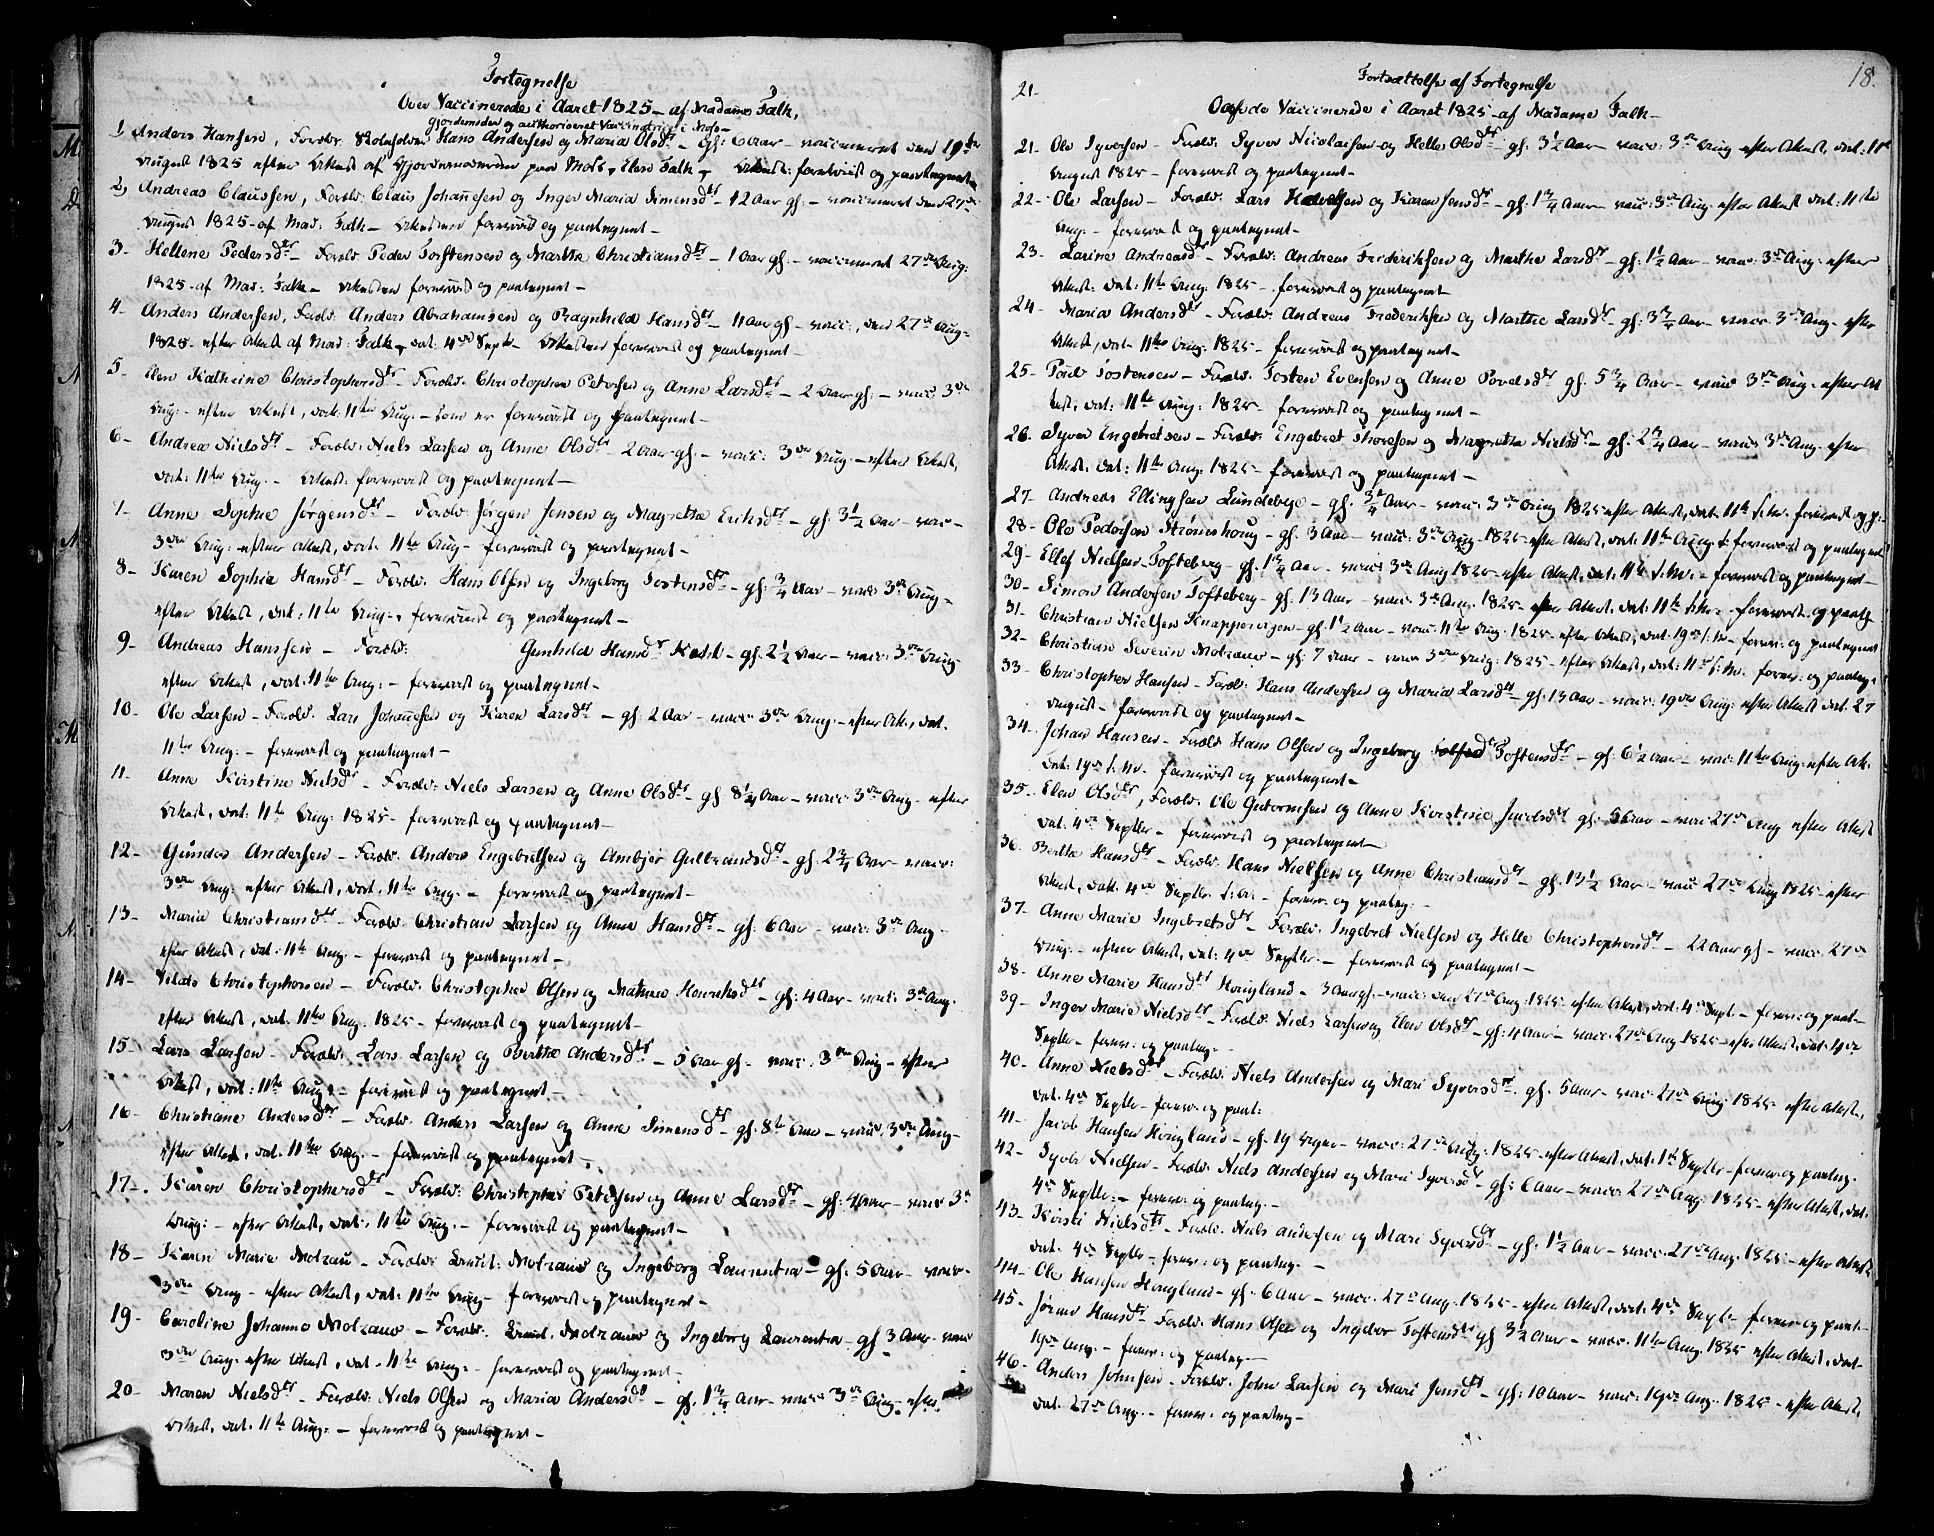 Fortegnelse
Over Vaccinerede i Aaret 1825 - af Madame Falk,
Gjordemoder og authoriseret Vaccinatrice i Moss -
1, Anders Hansen, Foræld. Skoleholder Hans Andersen og Maria Olsdtr - gl: 6 Aar - vaccineret den 19de
August 1825 efter Attest af Gjordemoderen paa Moss, Elen Falk, Attest: foreviist og paategnet -
2, Andreas Claussen, Foræld: Claus Johannesen og Inger Maria Simensdtr - 12 Aar gl: - vaccineret den 27de
August 1825 - af Mad: Falk - Attesten foreviist og paategnet -
3 - Hellene Pedersdtr - Foræld: Peder Torstensen og Marthe Christiansdtr - 1 Aar gl: - vaccineret 27de Aug:
1825 - af Mad: Falk - Attesten foreviist og paategnet -
4 - Anders Andersen, Foræld: Anders Abrahamsen og Ragnhild Hansdtr - 11 Aar gl - vacc:, den 27de Aug:
1825 - efter Attest af Mad: Falk, dat: 4de Septr - Attesten foreviist og paategnet -
5 - Elen Kathrine Christophersdtr - Foræld: Christopher Petersen og Anne Larsdtr - 2 Aar gl: - vacc: 3de
Aug: - efter Attest, dat: 11te Aug: - som er foreviist og paategnet -
6 - Andrea Nielsdtr - Foræld: Niels Larsen og Anne Olsdtr 2 Aar gl: - vacc: 3de Aug: - efter Attest,
dat: 11te Aug: - Attest: foreviist og paategnet -
7 - Anne Sophie Jørgensdtr - Foræld: Jørgen Jensen og Magrethe Eriksdtr - gl: 3 1/2 Aar - vacc -
3de Aug: efter Attest, dat: 11te Aug - foreviist og paategnet -
8 - Karen Sophia Hansdtr - Foræld: Hans Olsen og Ingeborg Tostensdtr - gl: 3/4 Aar - vacc: 3de Aug -
efter Attest, dat: 11te Aug: - foreviist og paategnet -
9 - Andreas Hanssen - Foræld: Gunhild Hansdtr - gl: 2 1/2 Aar - vacc: 3de Aug -
efter Attest, dat: 11te Aug: - foreviist og paategnet -
10 - Ole Larsen - Foræld: Lars Johannesen og Karen Larsdtr - gl: 2 Aar - vacc: 3de Aug: - efter Att:, dat:
11te Aug: - foreviist og paategnet -
11 - Anne Kirstine Nielsdtr - Foræld: Niels Larsen og Anne Olsdtr - gl 8 1/4 Aar - vacc: 3de Aug - efter
Attest, dat: 11te Aug: 1825 - foreviist og paategnet -
12 - Gunder Andersen - Foræld: Anders Engebretsen og Ambjør Gulbrandsdtr - gl: 2 3/4 Aar - vacc:
3de Aug: efter Attest, dat: 11te Aug: - foreviist og paategnet -
13 - Maria Christiansdtr - Foræld: Christian Larsen og Anne Hansdtr - gl: 6 Aar - vacc: 3de Aug -
efter Attest, dat: 11te Aug: - foreviist og paategnet -
14 - Christophersen - Foræld: Christopher Olsen og Mathea Henriksdtr - gl: 4 Aar - vacc: 3de Aug:
efter Attest, dat: 11te Aug: 1825 - foreviist og paategnet -
15 - Lars Larsen - Foræld: Lars Larsen og Berthe Andersdtr - 5 Aar gl: - vacc: 3de Aug - efter
Attest, dat: 11te Aug: - foreviist og paategnet -
16 - Christiane Andersdtr - Foræld: Anders Larsen og Anne Simensdtr - gl: 8te Aar - vacc: 3de Aug -
efter Attest, dat: 11te Aug: - foreviist og paategnet -
17 - Karen Christophersdtr - Foræld: Christopher Petersen og Anne Larsdtr - gl: 4 Aar - vacc 3de
Aug: - efter Attest, dat: 11te Aug: - foreviist og paategnet -
18 - Karen Maria Molzau - Foræld: Molzau og Ingeborg Laurentia - gl: 5 Aar - vacc -
3de Aug - efter Attest, dat: 11te Aug - foreviist og paategnet -
19 - Caroline Johanna Molzau - Foræld: Molzau og Ingeborg Laurentia - gl 3 Aar - vacc
3de Aug: efter Attest, dat: 11te Aug: - foreviist og paategnet -
20 - Maren Nielsdtr - Foræld: Niels Olsen og Maria Andersdtr - gl: 1 3/4 Aar - vacc: 3de Aug - efter
Attest, dat: 11te Aug: - foreviist og paategnet -
18.
21 -
Fortsættelse af Fortegnelse
Over de Vaccinerede i Aaret 1825 - af Madame Falk -
21 - Ole Syversen - Foræld: Syver Nicolaisen og Helle Olsdtr - gl: 3 1/2 Aar - vacc: 3de Aug efter Attest, dat: 11te
August 1825 - foreviist og paategnet -
22 - Ole Larsen - Foræld: Lars og Karen Jensdtr - gl: 1 3/4 Aar - vacc: 3de Aug: efter Attest dat: 11te
Aug: - foreviist og paategnet -
23 - Larine Andreasdtr - Foræld: Andreas Frederiksen og Marthe Larsdtr - gl: 1 1/2 Aar - vacc: 3de Aug: efter
Attest: dat: 11te Aug: 1825 - foreviist og paategnet -
24 - Maria Andersdtr - Foræld: Andreas Frederiksen og Marthe Larsdtr - gl: 3 3/4 Aar - vacc: 3de Aug - efter
Attest, dat: 11te Aug: 1825 - foreviist og paategnet -
25 - Poul Tostensen - Foræld: Tosten Evensen og Anne Povelsdtr gl: 5 3/4 Aar - vacc 3de Aug: efter At
test, dat: 11te Aug: 1825 - foreviist og paategnet -
26 - Syver Engebretsen - Foræld: Engebret Thoresen og Magrethe Nielsdtr - gl: 2 3/4 Aar - vacc: 3de Aug: efter
Attest, dat: 11te Aug: 1825 - foreviist og paategnet -
27 - Andreas Ellingsen Lundebye - gl: 3/4 Aar - vacc: 3de Aug 1825 efter Attest, dat: 11te s:m: foreviist og p:
28 - Ole Pedersen Strømshoug - gl: 3 Aar - vacc: 3de Aug - 1825 - efter Attest, dat: 11te Aug: foreviist og paategnet
29 - Ellef Nielsen Tofteberg - gl: 1 3/4 Aar - vacc: 3de Aug 1825 - efter Attest, dat: 11te s:m: - foreviist og paategnet -
30 - Simon Andersen Tofteberg - gl: 13 Aar - vacc: 3de Aug: 1825 - efter Attest, dat: 11te s:m: - foreviist og paateg -
31 - Christian Nielsen Knappervigen - gl: 1 1/2 Aar - vacc: 11te Aug: 1825 - efter Attest, dat: 19de s:m - forev: og paategnet
32 - Christian Severin Molzau - gl: 7 Aar - vacc 3de Aug: 1825 - efter Attest, dat: 11te s:m: forev: og paateg -
33 - Christopher Hansen - Foræld: Hans Andersen og Maria Larsdtr - gl: 13 Aar - vacc: 19de Aug: efter Attest dat: 27
August - foreviist og paategnet -
34 - Johan Hansen - Foræld Hans Olsen og Ingeborg Tostensdtr - gl: 6 1/2 Aar - vacc: 11te Aug: efter Att:
dat: 19de s:m: - foreviist og paategnet -
35 - Elen Olsdtr, Foræld: Ole Gutormsen og Anne Kirstine gl: 5 Aar - vacc: 27de Aug efter Attest
dat: 4de Septbr - foreviist og paategnet -
36 - Berthe Hansdtr - Foræld: Hans Nielsen og Anne Christiansdtr - gl: 13 1/2 Aar - vacc 27de Aug 1825 - efter
Attest, dat: 4de Septbr - forev: og paateg: -
37 - Anne Marie Ingebretsdtr - Foræld: Ingebret Nielsen og Helle Christophersdtr - 22 Aar gl - vacc: 27de
Aug: - efter Attest, dat: 4de Septbr: - foreviist og paategnet -
38 - Anne Marie Hansdtr Hougland - 3 Aar gl: - vacc: den 27de Aug: 1825 - efter Attest, dat: 4de Septr - forev: og paat -
39 - Inger Marie Nielsdtr - Foræld: Niels Larsen og Elen Olsdtr - gl: 4 Aar - vacc: 27de Aug 1825 - efter Attest, dat: 4de
Septbr - forev: og paateg -
40 - Anne Nielsdtr - Foræld: Niels Andersen og Mari Syversdtr - gl: 5 Aar - vacc: 27de Aug: 1825 - efter Attest,
dat: 4de Septbr - forev: og paat:
41 - Jacob Hansen Hougland - gl: 19 Uger - vacc: 27de Aug: 1825 - efter Attest, dat: Septbr - forev: og paateg -
42 - Syver Nielsen - Foræld: Niels Andersen og Mari Syversdtr - gl: 6 Aar - vacc: 27de Aug: 1825 - efter Attest, dat:
4de Septbr: - forev: og paateg -
43 - Kirsti Nielsdtr - Foræld: Niels Andersen og Mari Syversdtr - gl: 1 1/2 Aar - vacc: 27de Aug: 1825 - efter Attest
dat: 4de Septbr - forev: og paateg -
44 - Ole Hansen Hougland - gl: 6 Aar - vacc: 27de Aug: 1825 - efter Attest, dat: 4de Septbr - forev: og paat -
45 - Hansdtr - Foræld: Hans Olsen og Ingebor Tostensdtr gl 3 1/2 Aar - vacc: 11te Aug: 1825 efter Attest, dat -
19de Aug: - forev: og paateg -
46 - Anders Johnsen - Foræld: John Larsen og Mari Jensdtr - gl: 10 Aar - vacc: 19de Aug: 1825 - efter Attest,
dat: 27de Aug: - forev: og paateg -